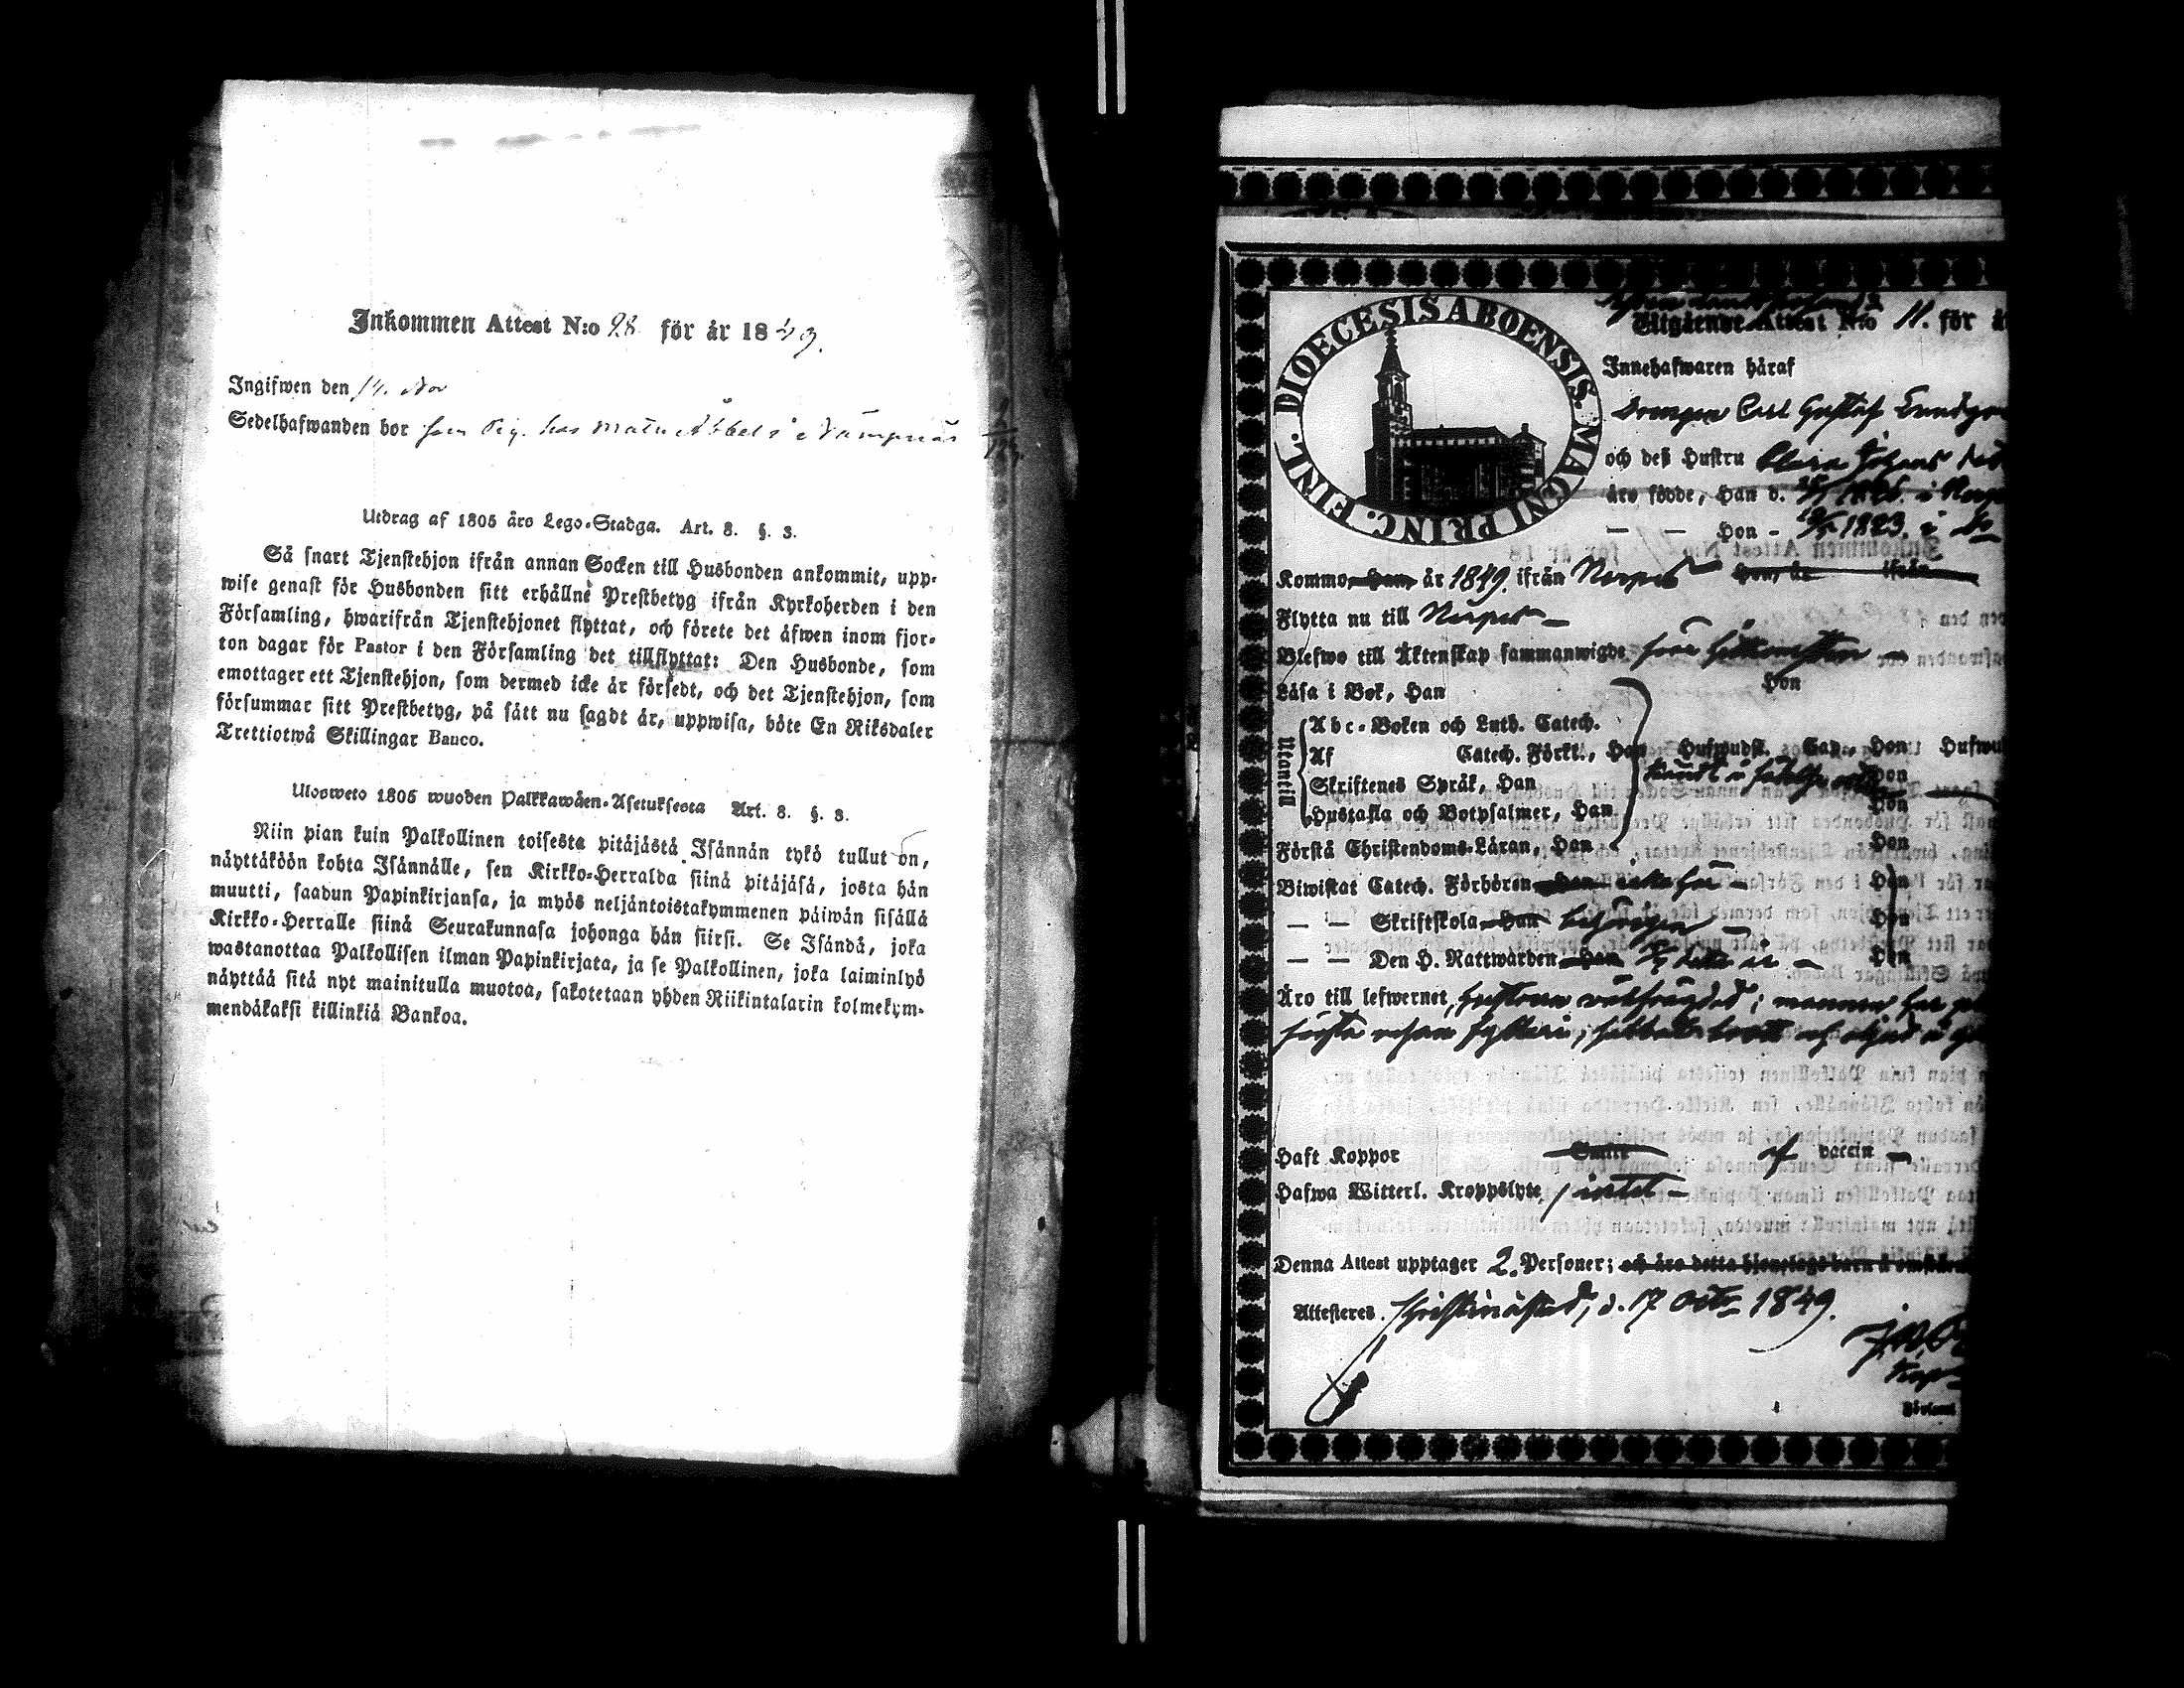 Inkommen Attest N:o 98 för år 1849.
Ingifwen den 14. Nov
Sedelhafwanden bor som Pig. hos Matts Abbels i Nämpnäs
Utdrag af 1805 års Lego-Stadga. Art. 8. §. 3.
Så snart Tjenstehjon ifrån annan Socken till Husbonden ankommit, upp-
wise genast för Husbonden sitt erhållne Prestbetyg ifrån Kyrkoherden i den
Församling, hwarifrån Tjenstehjonet flyttat, och förete det äfwen inom fjor-
ton dagar för Pastor i den Församling det tillflyttat: Den Husbonde, som
emottager ett Tjenstehjon, som dermed icke är försedt, och det Tjenstehjon, som
försummar sitt Prestbetyg, på sätt nu sagdt är, uppwisa, böte En Riksdaler
Trettiotwå Skillingar Banco.
Ulosweto 1805 wuoden Palkkawäen-Asetuksesta Art. 8. §. 3.
Niin pian kuin Palkollinen toisesta pitäjästä Isännän tykö tullut on,
näyttäköön kohta Isännälle, sen Kirkko-Herralda siinä pitäjäsä, josta hän
muutti, saadun Papinkirjansa, ja myös neljäntoistakymmenen päiwän sisällä
Kirkko-Herralle siinä Seurakunnasa johonga hän siirsi. Se Isändä, joka
wastanottaa Palkollisen ilman Papinkirjata, ja se Palkollinen, joka laiminlyö
näyttää sitä nyt mainitulla muotoa, sakotetaan yhden Riikintalarin kolmekym-
mendäkaksi killinkiä Bankoa.
DIOECESIS ABOENSIS. MAGNI PRINC. FINL.
Utgående Attest N:o 11. för
Innehafwaren häraf
Drengen Carl Gustaf
och deß Hustru Johans
äro födde, Han d. i
— — Hon - 1823. i do
Kommo, Han, år 1849. ifrån Nerpes Hon, år ifrån
Flytta nu till Nerpes —
Blefwo till Äktenskap sammanwigde före hitkomsten —
Läsa i Bok, Han Hon
Utantill
Abc-Boken och Luth. Catech.
Af Catech. Förkl., Han Hufwudst. Cap., Hon
Skriftenes Språk, Han Hon
Hustafla och Botpsalmer, Han Hon
Förstå Christendoms-Läran, Han Hon
Biwistat Catech. Förhören Han Hon
— — Skriftskola Han Hon
— — Den H. Nattwarden Han Hon
Äro till lefwernet, hustrun välfrägdad; mannen har
första resan fylleri, sabbats brott och
Haft Koppor Smitt af vaccin —
Hafwa Witterl. Kroppslyte, intet —
Denna Attest upptager 2. Personer; och äro detta hjonelags barn
Attesteras. Christinæstad, d. 17 Octr 1849.